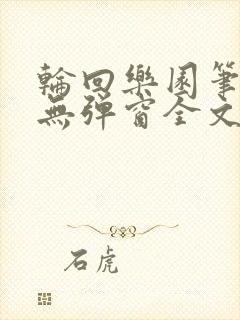 輪回樂園筆
無彈窗全文
石虎